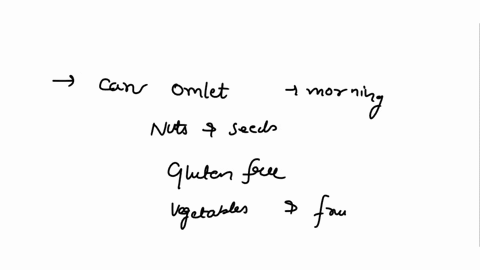 → can omlet → morning
Nuts → seeds
Gluten free
Vegetables → fru